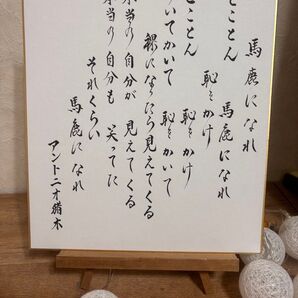 馬鹿になれ
とことん 馬鹿になれ
恥をかけ
とことん 恥をかけ
かいてかいて 恥をかいて
裸になったら 見えてくる
本当の自分が 見えてくる
本当の自分も 笑ってた
それくらい 馬鹿になれ
アントニオ猪木